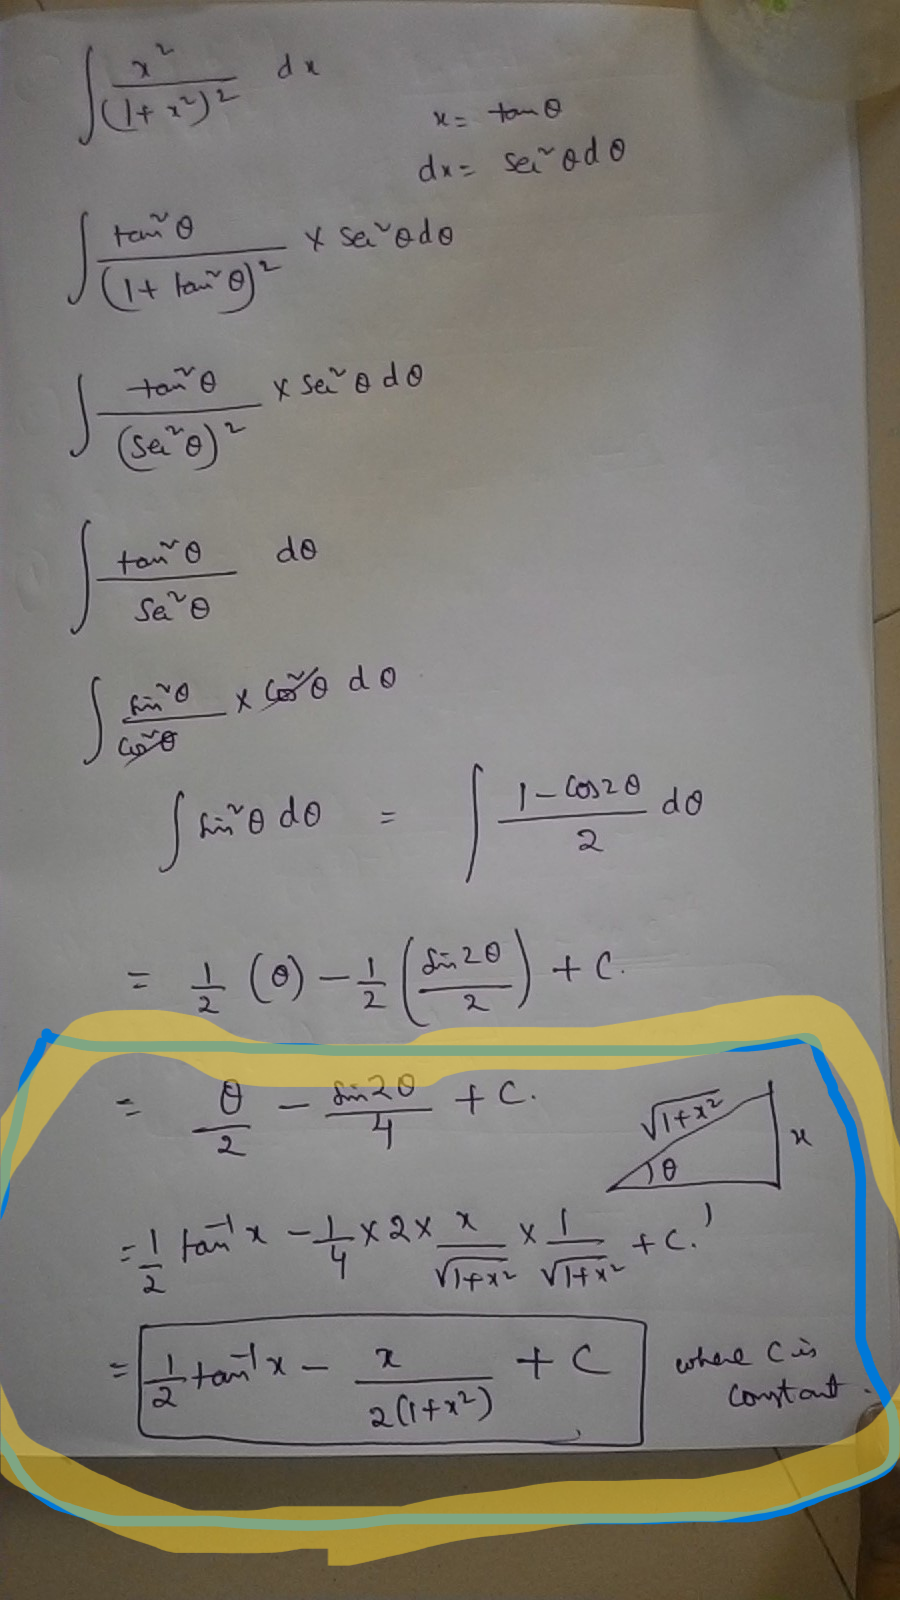 ∫ x² / (1+x²)² dx
x = tanθ
dx = sec²θdθ
∫ tan²θ / (1+tan²θ)² × sec²θdθ
∫ tan²θ / (sec²θ)² × sec²θdθ
∫ tan²θ / sec²θ dθ
∫ sin²θ / cos²θ × cos²θ dθ
∫ sin²θ dθ = ∫ 1-cos2θ / 2 dθ
= 1/2 (θ) - 1/2 (sin2θ / 2) + C.
= θ/2 - sin2θ/4 + C.
√1+x²
x
θ
= 1/2 tan⁻¹x - 1/4 × 2 × x/√1+x² × 1/√1+x² + C.'
= 1/2 tan⁻¹x - x / 2(1+x²) + C
where C is
constant.